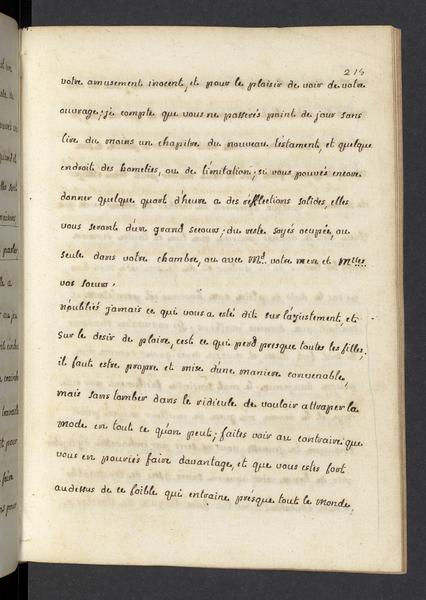 215
votre amusement inocent, et pour le plaisir de voir de votre
ouvrage; je compte que vous ne passerés point de jour sans
lire du moins un chapitre du nouveau testament, et quelque
endroit des homelies, ou de limitation; si vous pouvés encore
donner quelque quart d'heure a des réflections solides, elles
vous seront d'un grand secours; du reste soyés ocupée, ou
seule dans votre chambre, ou avec Md. votre mere et Mlles.
vos soeurs.
n'oubliés jamais ce qui vous a esté dit sur l'ajustement, et
sur le desir de plaire, cest ce qui perd presque toutes les filles;
il faut estre propre et mise d'une maniere convenable,
mais sans tomber dans le ridicule de vouloir attraper la
mode en tout ce qu'on peut; faites voir au contraire que
vous en pouriés faire davantage, et que vous estes fort
audessus de ce foible qui entraine présque tout le monde;